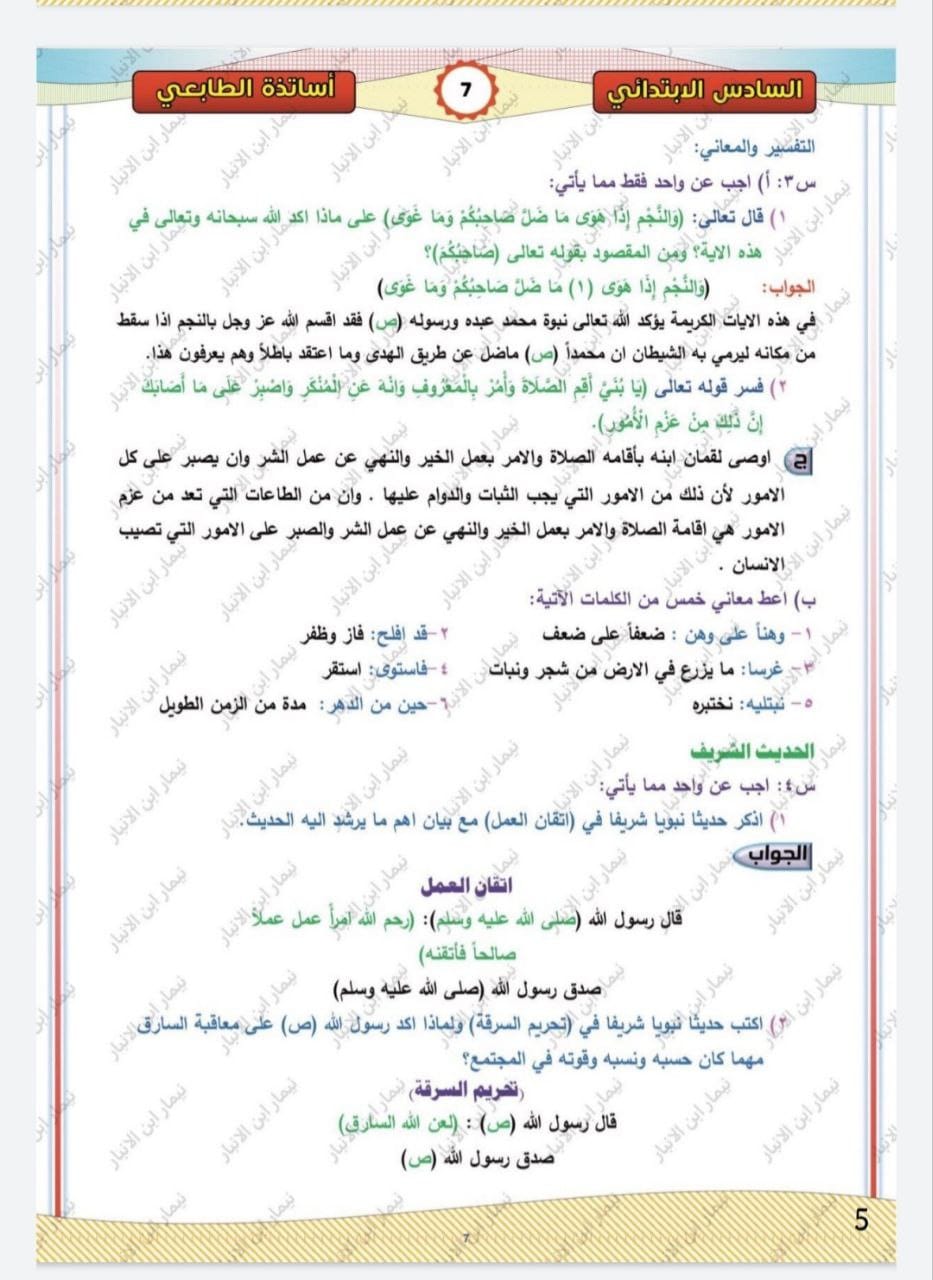 السادس الابتدائي
7
أساتذة الطابعي
التفسير والمعاني:
س٣: أ) اجب عن واحد فقط مما يأتي:
١) قال تعالى: (وَالنَّجْمِ إِذَا هَوَى مَا ضَلَّ صَاحِبُكُمْ وَمَا غَوَى) على ماذا اكد الله سبحانه وتعالى في
هذه الاية؟ ومن المقصود بقوله تعالى (صَاحِبُكُمْ)؟
الجواب: (وَالنَّجْمِ إِذَا هَوَى (١) مَا ضَلَّ صَاحِبُكُمْ وَمَا غَوَى)
في هذه الايات الكريمة يؤكد الله تعالى نبوة محمد عبده ورسوله (ص) فقد اقسم الله عز وجل بالنجم اذا سقط
من مكانه ليرمي به الشيطان ان محمداً (ص) ماضل عن طريق الهدى وما اعتقد باطلاً وهم يعرفون هذا.
٢) فسر قوله تعالى (يَا بُنَيَّ أَقِمِ الصَّلَاةَ وَأْمُرْ بِالْمَعْرُوفِ وَانْهَ عَنِ الْمُنْكَرِ وَاصْبِرْ عَلَى مَا أَصَابَكَ
إِنَّ ذَلِكَ مِنْ عَزْمِ الْأُمُورِ).
ج اوصى لقمان ابنه بأقامه الصلاة والامر بعمل الخير والنهي عن عمل الشر وان يصبر على كل
الامور لأن ذلك من الامور التي يجب الثبات والدوام عليها . وان من الطاعات التي تعد من عزم
الامور هي اقامة الصلاة والامر بعمل الخير والنهي عن عمل الشر والصبر على الامور التي تصيب
الانسان .
ب) اعط معاني خمس من الكلمات الآتية:
١- وهناً على وهن : ضعفاً على ضعف ٢-قد افلح: فاز وظفر
٣- غرسا: ما يزرع في الارض من شجر ونبات ٤-فاستوى: استقر
٥- نبتليه: نختبره ٦-حين من الدهر: مدة من الزمن الطويل
الحديث الشريف
س٤: اجب عن واحد مما يأتي:
١) اذكر حديثا نبويا شريفا في (اتقان العمل) مع بيان اهم ما يرشد اليه الحديث.
الجواب
اتقان العمل
قال رسول الله (صلى الله عليه وسلم): (رحم الله امرأ عمل عملاً
صالحاً فأتقنه)
صدق رسول الله (صلى الله عليه وسلم)
٢) اكتب حديثا نبويا شريفا في (تحريم السرقة) ولماذا اكد رسول الله (ص) على معاقبة السارق
مهما كان حسبه ونسبه وقوته في المجتمع؟
(تحريم السرقة)
قال رسول الله (ص) : (لعن الله السارق)
صدق رسول الله (ص)
5
7
نيمار ابن الانبار